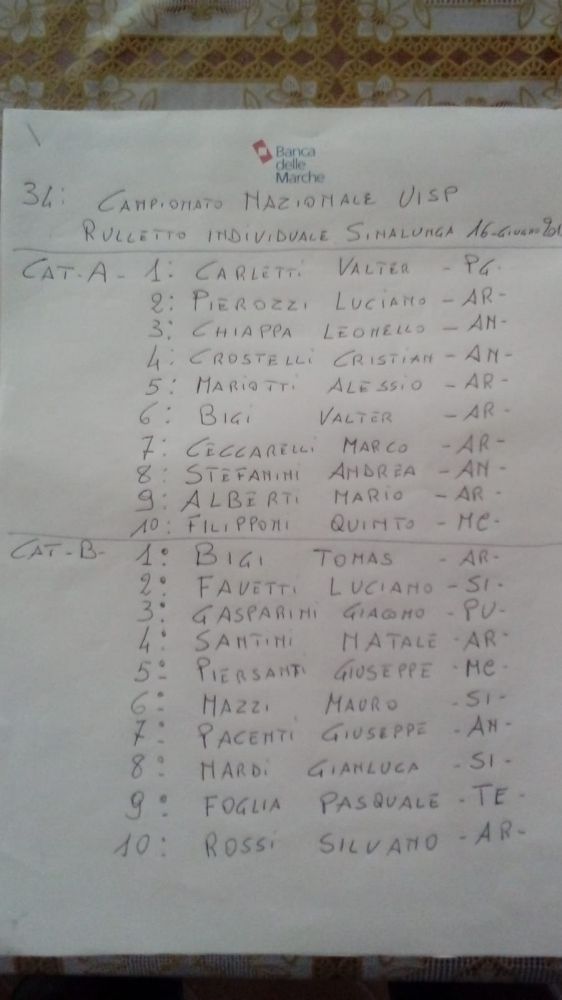 Banca
delle
Marche
34: CAMPIONATO NAZIONALE UISP
RULLETTO INDIVIDUALE SINALUNGA 16-GIUGNO
CAT.A- 1: CARLETTI VALTER - PG.
2: PIEROZZI LUCIANO - AR-
3: CHIAPPA LEONELLO - AN-
4: CROSTELLI CRISTIAN - AN-
5: MARIOTTI ALESSIO - AR-
6: BIGI VALTER - AR-
7: CECCARELLI MARCO - AR-
8: STEFANINI ANDREA - AN-
9: ALBERTI MARIO - AR-
10: FILIPPONI QUINTO - MC-
CAT-B- 1° BIGI TOMAS - AR-
2° FAVETTI LUCIANO - SI-
3° GASPARINI GIACOMO - PU-
4° SANTINI NATALE - AR-
5° PIERSANTI GIUSEPPE - MC-
6° NAZZI MAURO - SI-
7° PACENTI GIUSEPPE - AN-
8° NARDI GIANLUCA - SI-
9° FOGLIA PASQUALE - TE-
10: ROSSI SILVANO - AR-